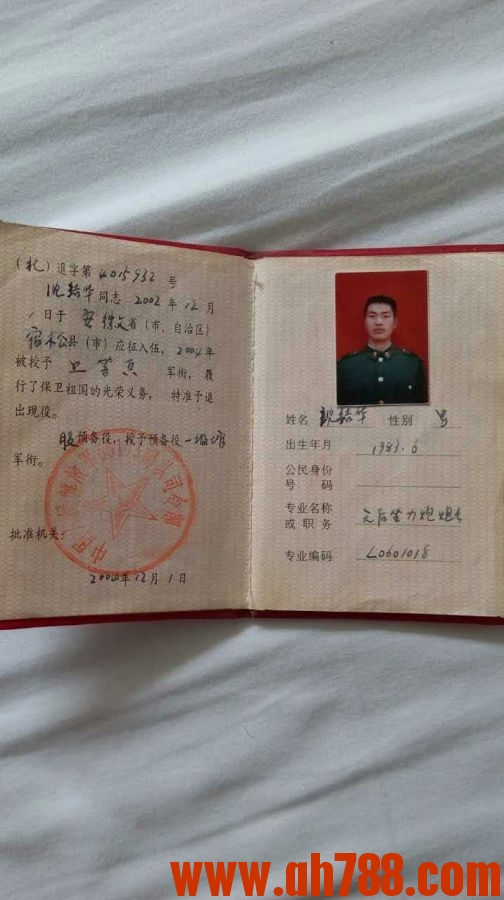 (北) 退字第 4015932 号
同志 2002 年 12 月
1 日于 安徽 省 (市、自治区)
宿松 县 (市) 应征入伍, 2004 年
被授予 上等兵 军衔, 履
行了保卫祖国的光荣义务, 特准予退
出现役。
服 预备役, 授予预备役
军衔。
批准机关:
2004 年 12 月 1 日
姓名 性别 男
出生年月 1983.6
公民身份
号 码
专业名称
或 职 务 无后坐力炮炮长
专业编码 L0601018
www.qh788.com